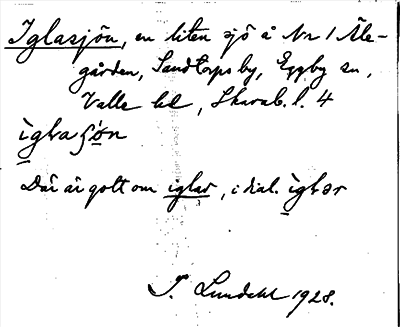 Iglasjön, en liten sjö å Nr 1 Åle-
gården, Sandtorps by, Eggby sn,
Valle hd, Skarab. l. 4
Där är gott om iglar, i dial.
S. Lundahl 1928.